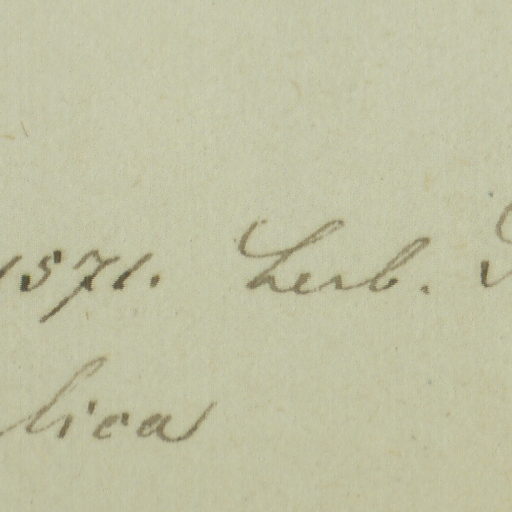 1571. Herb.
lica